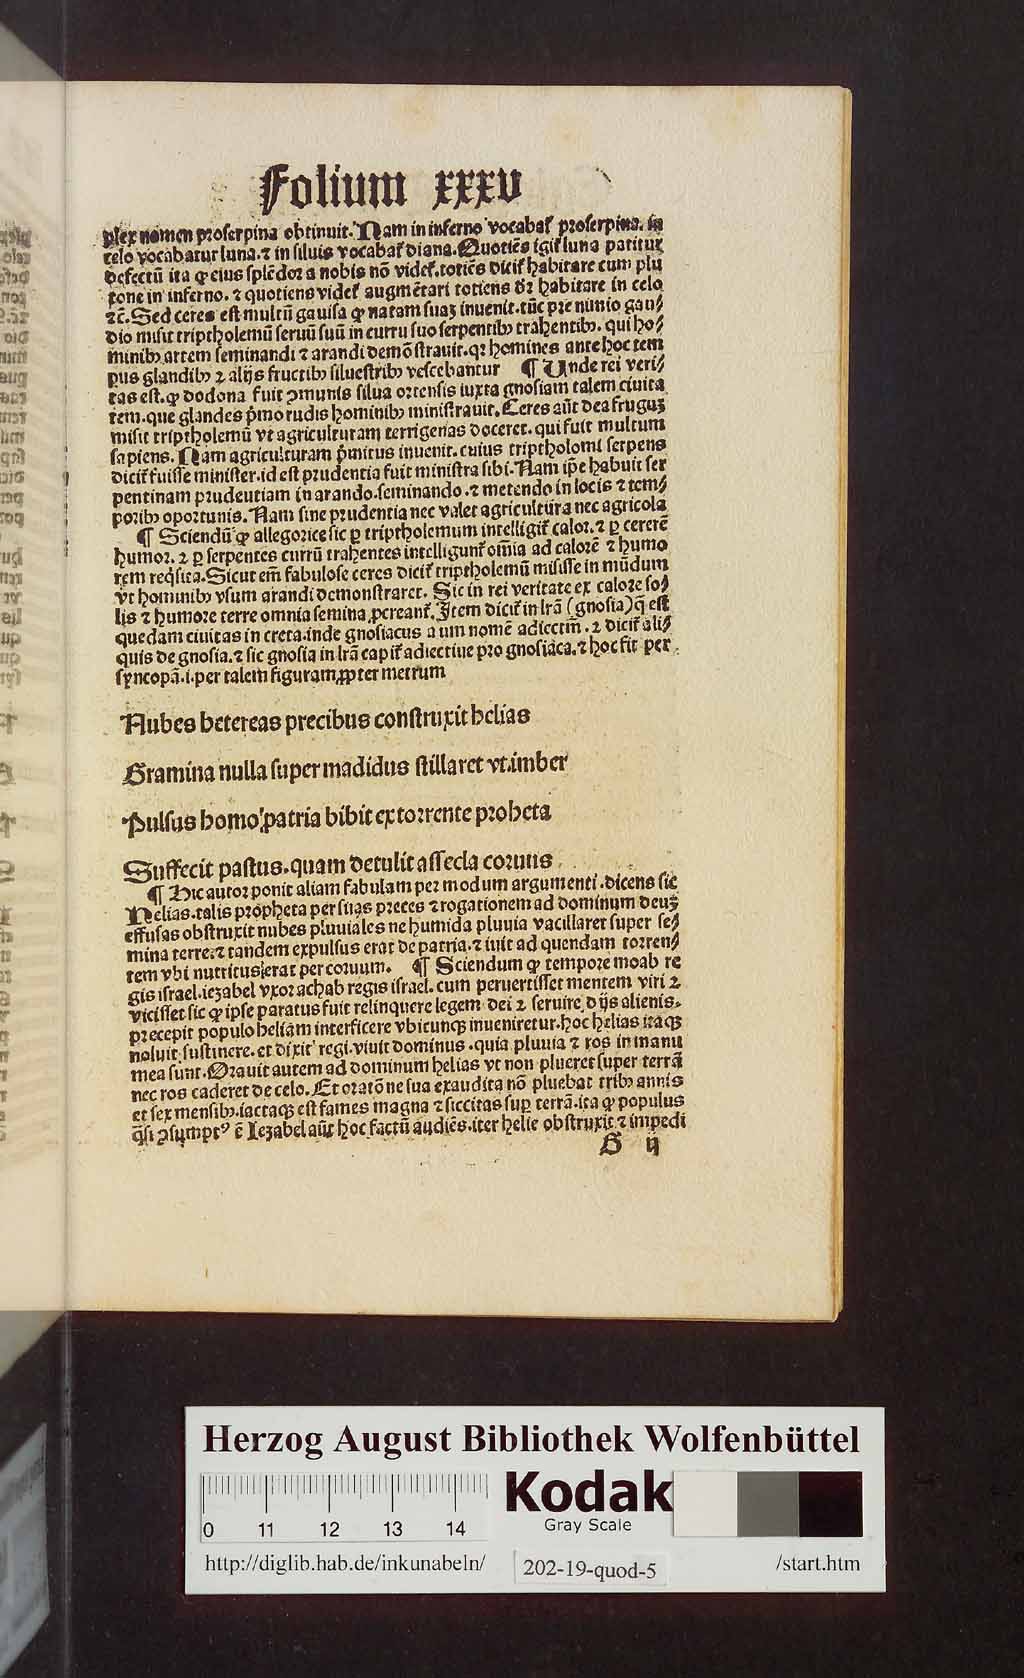 Folium XXXV
plex nomen proserpina obtinuit. Nam in inferno vocaba&#x74;̛ proserpina. in
celo vocabatur luna. ⁊ in siluis vocabat̛ diana. Quotiēs igit̛ luna patitur
defectū ita ꝙ eius splēdor a nobis nō videt̛. totiēs dicit̛ habitare cum plu
tone in inferno. ⁊ quotiens videt̛ augmētari totiens dꝛ habitare in celo
⁊c̄. Sed ceres est multū gauisa ꝙ natam suaꝫ inuenit. tūc pre nimio gau⸗
dio misit triptholemū seruū suū in curru suo serpentibꝫ trahentibꝫ. qui ho⸗
minibꝫ artem seminandi ⁊ arandi demōstrauit. qꝛ homines ante hoc tem
pus glandibꝫ ⁊ alijs fructibꝫ siluestribꝫ vescebantur ¶ Unde rei veri⸗
tas est. ꝙ dodona fuit ꝯmunis silua ortensis iuxta gnosiam talem ciuita
tem. que glandes p̄mo rudis hominibꝫ ministrauit. Ceres aūt dea fruguꝫ
misit triptholemū vt agriculturam terrigenas doceret. qui fuit multum
sapiens. Nam agriculturam p̄mitus inuenit. cuius triptholomi serpens
dicit̛ fuisse minister. id est prudentia fuit ministra sibi. Nam ip̄e habuit ser
pentinam prudeutiam in arando. seminando. ⁊ metendo in locis ⁊ tem⸗
poribꝫ oportunis. Nam sine prudentia nec valet agricultura nec agricola
¶ Sciendū ꝙ allegorice sic ꝑ triptholemum intelligit̛ calor. ⁊ ꝑ cererē
humor. ⁊ ꝑ serpentes currū trahentes intelligunt̛ om̄ia ad calorē ⁊ humo
rem req̄sita. Sicut em̄ fabulose ceres dicit̛ triptholemū misisse in mūdum
vt hominibꝫ vsum arandi demonstraret. Sic in rei veritate ex calore so⸗
lis ⁊ humore terre omnia semina ꝓcreant̛. Item dicit̛ in lr̄a (gnosia) q̄ est
quedam ciuitas in creta. inde gnosiacus a um nomē adiectiū. ⁊ dicit̛ ali⸗
quis de gnosia. ⁊ sic gnosia in lr̄a capit̛ adiectiue pro gnosiaca. ⁊ hoc fit per
syncopā. i. per talem figuram ꝓpter metrum
Nubes hetereas precibus construxit helias
Gramina nulla super madidus stillaret vt imber
Pulsus homo patria bibit ex torrente proheta
Suffecit pastus. quam detulit assecla coruus
¶ Hic autor ponit aliam fabulam per modum argumenti. dicens sic
Helias. talis propheta per suas preces ⁊ rogationem ad dominum deuꝫ
effusas obstruxit nubes pluuiales ne humida pluuia vacillaret super se⸗
mina terre. ⁊ tandem expulsus erat de patria. ⁊ iuit ad quendam torren⸗
tem vbi nutritus erat per coruum. ¶ Sciendum ꝙ tempore moab re
gis israel. iezabel vxor achab regis israel. cum peruertisset mentem viri ⁊
vicisset sic ꝙ ipse paratus fuit relinquere legem dei ⁊ seruire dijs alienis.
precepit populo heliam interficere vbicunqꝫ inueniretur. hoc helias itaqꝫ
noluit sustinere. et dixit regi. viuit dominus. quia pluuia ⁊ ros in manu
mea sunt. Orauit autem ad dominum helias vt non plueret super terrā
nec ros caderet de celo. Et oratōne sua exaudita nō pluebat tribꝫ annis
et sex mensibꝫ. iactaqꝫ est fames magna ⁊ siccitas suꝑ terrā. ita ꝙ populus
q̄si ꝯsumptꝰ ē Iezabel aūt hoc factū audiēs. iter helie obstruxit ⁊ impedi
G ij
Herzog August Bibliothek Wolfenbüttel
0 11 12 13 14
Kodak
Gray Scale
http://diglib.hab.de/inkunabeln/ 202-19-quod-5 /start.htm